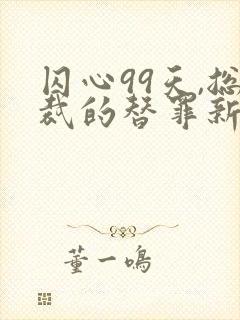 囚心99天,总
裁的替罪新
董一鸣